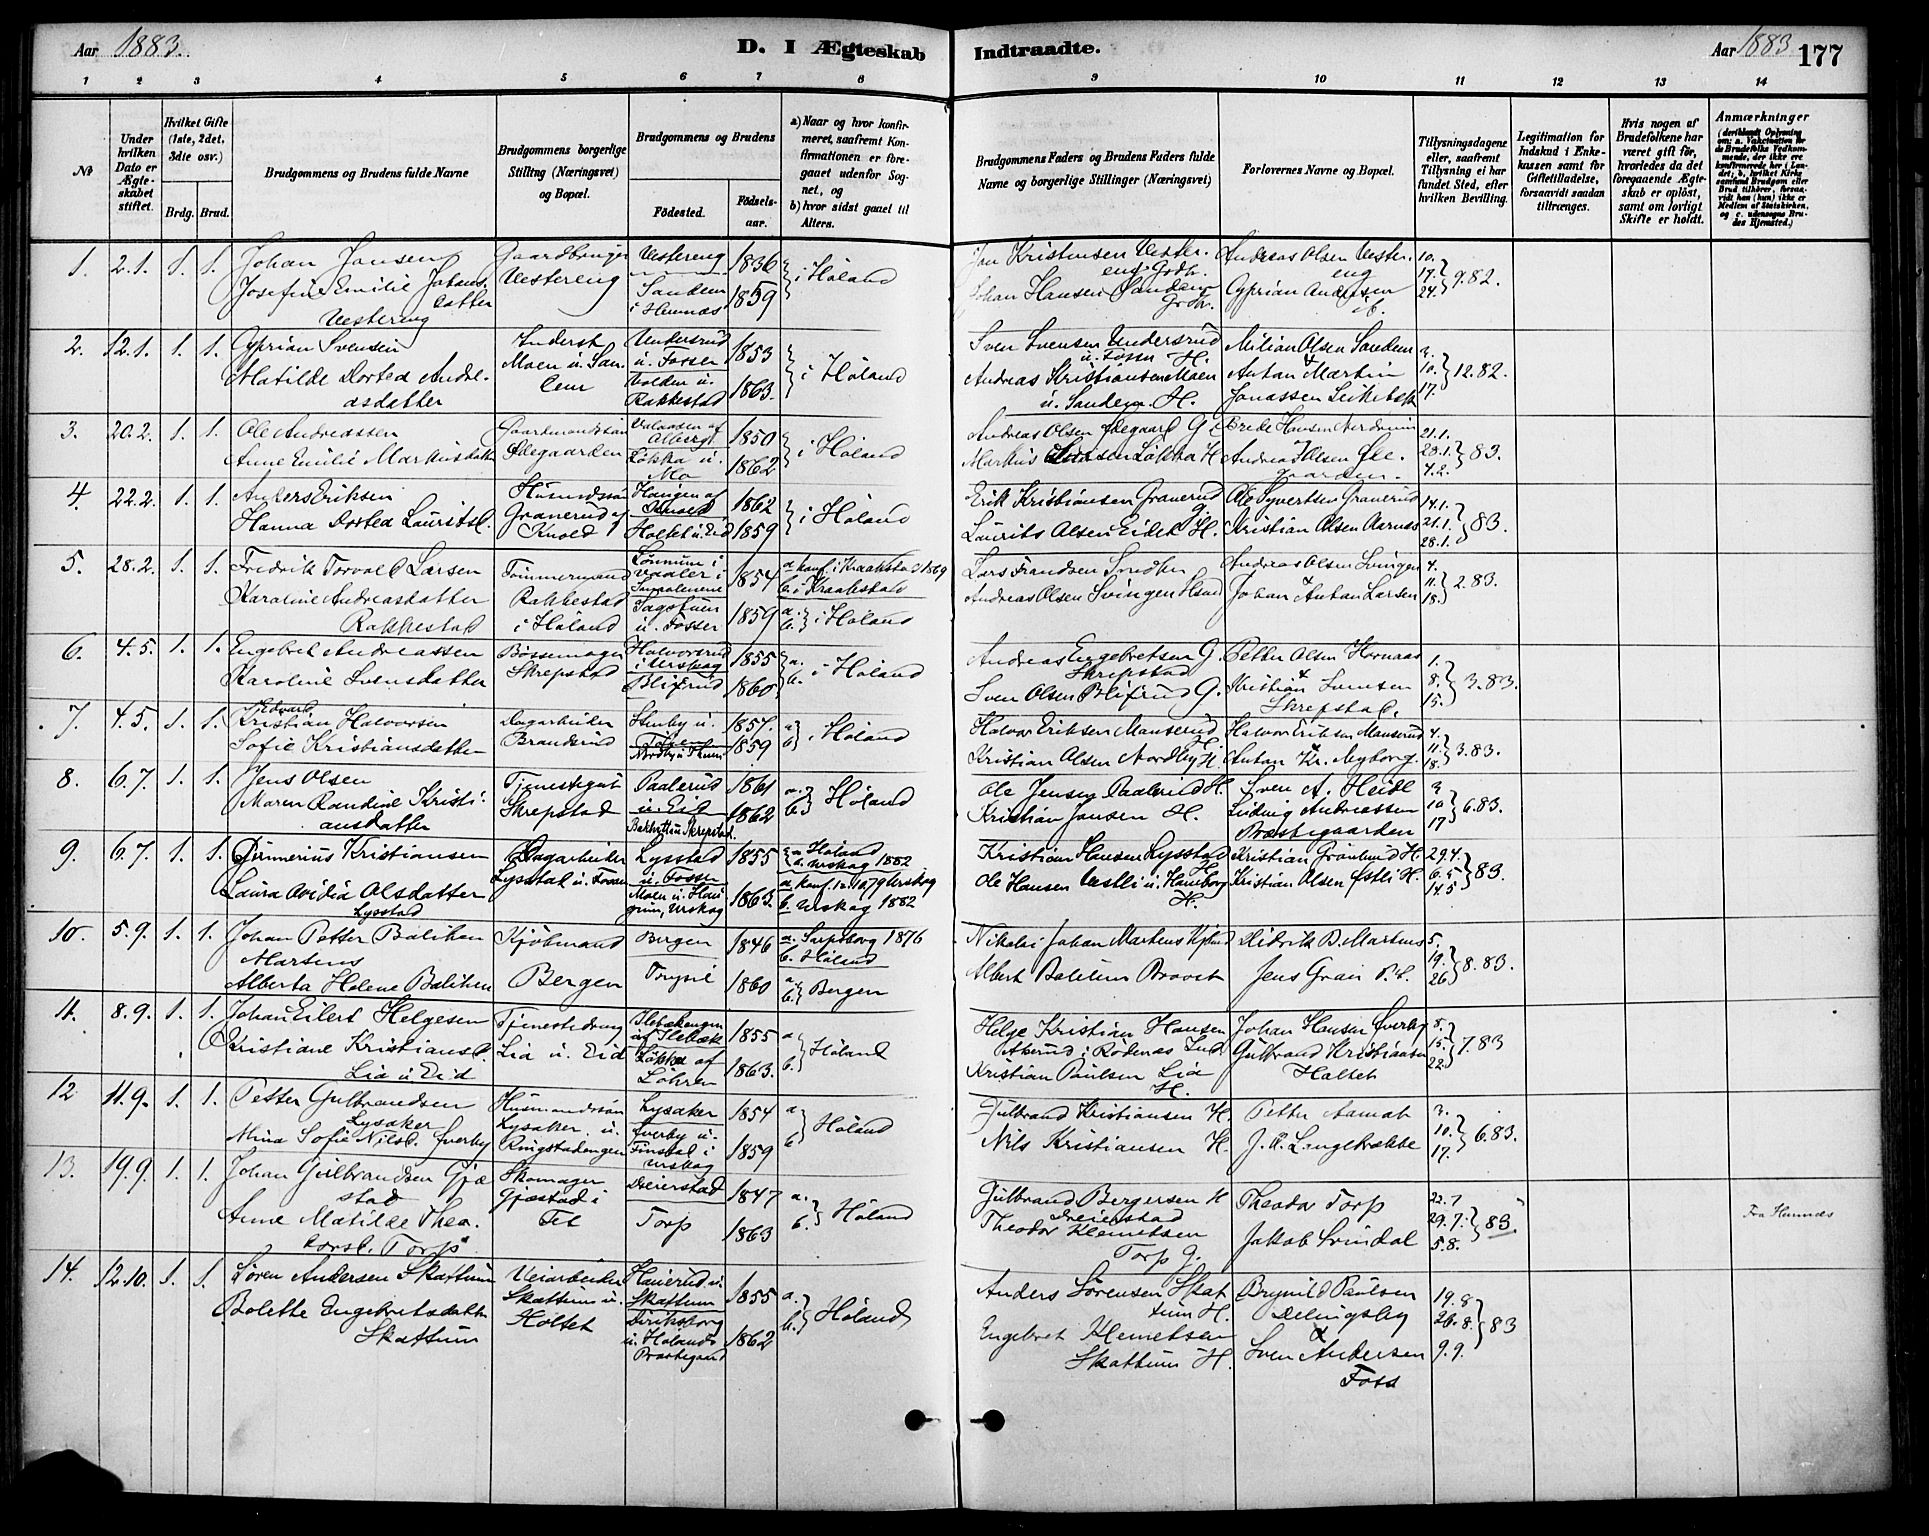 Aar 1883.
D. I Ægteskab Indtraadte.
Aar 1883
177
1 2 3 4 5 6 7 8 9 10 11 12 13 14
No
Under hvilken Dato er Ægteskabet stiftet.
Hvilket Gifte (1ste, 2det, 3die osv.)
Brdg. Brud.
Brudgommens og Brudens fulde Navne
Brudgommens borgerlige Stilling (Næringsvei) og Bopæl.
Brudgommens og Brudens
Födested.
Födselsaar.
a) Naar og hvor konfirmeret, saafremt Konfirmationen er foregaaet udenfor Sognet, og
b) hvor sidst gaaet til Alters.
Brudgommens Faders og Brudens Faders fulde Navne og borgerlige Stillinger (Næringsvei)
Forlovernes Navne og Bopæl.
Tillysningsdagene eller, saafremt Tillysning ei har fundet Sted, efter hvilken Bevilling.
Legitimation for Indskud i Enkekassen samt for Giftetilladelse, forsaavidt saadan tiltrænges.
Hvis nogen af Brudefolkene har været gift för, hvorledes da det foregaaende Ægteskab er oplöst, samt om lovligt Skifte er holdt.
Anmærkninger
1. 2.1. 1. 1. Johan Jansen
Josefine Emilie Johansdatter
Vestereng
Gaardbruger Vestereng
Vestereng 1836
Sandem i Hemnæs 1859
i Høland
Jan Kristensen Vestereng Grdbr.
Johan Hansen Sandem Grdbr.
Andreas Olsen Vestereng
Cyprian Andersen
10. 17. 24. } 9.82.
2. 12.1. 1. 1. Cyprian Svensen
Matilde Dortea Andreasdatter
Inderst Moen u. Sandem
Undersrud u. Fosser 1853
Volden u. Rakkestad 1863.
i Høland
Sven Svensen Undersrud u. Fosser H.
Andreas Kristiansen Moen u. Sandem. H.
Milian Olsen Sandem
Anton Martin Jonassen
3. 10. 17. } 12.82.
3. 20.2. 1. 1. Ole Andreassen
Anne Emilie Markusdatter
Gaardmandssøn Ødegaarden
1850
Løkka u. Mo 1862
i Høland
Andreas Olsen Ødegaard G.
Markus Løkka H.
Andreas Olsen Ødegaarden.
21.1. 28.1. 4.2. } 83.
4. 22.2. 1. 1. Anders Eriksen
Hanna Dortea Lauritsd.
Husmdssøn Granerud af Knold
Haugen af Knold 1862
Holtet u. Eid 1859
i Høland
Erik Kristiansen Granerud G.
Laurits Olsen Eidet H.
Ole Syvertsen Granerud
Kristian Olsen Aarnæs
14.1. 21.1. 28.1. } 83.
5. 28.2. 1. 1. Fredrik Torvald Larsen
Karoline Andreasdatter
Rakkestad
Tømmermand Rakkestad i Høland
1854
Sagstuen u. Fosser 1859
a konf. i Kraakstad 1869
b. i Kraakstad
a. b. } i Høland
Lars Frandsen
Andreas Olsen Svingen Hsmd
Andreas Olsen Svingen
Johan Anton Larsen
4. 11. 18. } 2.83.
6. 4.5. 1. 1. Engebret Andreassen
Karoline Svensdatter
Bøssemager Skrepstad
Halvorsrud i Urskog 1855
Blixrud 1860
a. b. i Høland
Andreas Engebretsen G. Skrepstad
Sven Olsen Blixrud G.
Petter Olsen Hornaas
Kristian Svensen Skrepstad.
1. 8. 15. } 3.83.
7. 4.5. 1. 1. Kristian Edvard Halvorsen
Sofie Kristiansdatter
Dagarbeider Branderud
1857.
Nordby u. 1859
a b } i Høland
Halvor Eriksen Manserud
Kristian Olsen Nordby H.
Halvor Eriksen Manserud
Anton Kr. Nyborg.
4. 11. 18. } 3.83.
8. 6.7. 1. 1. Jens Olsen
Maren Randine Kristiansdatter
Tjenestegut Skrepstad
Paalerud u. Eid 1861
Bakhyttau Skrepstad. 1862
a. b } Høland
Ole Jensen Paalerud H.
Kristian Jansen H.
Sven A. Heide
Ludvig Andreassen Præstegaarden
3. 10 17 } 6.83.
9. 6.7. 1. 1. Gunnerius Kristiansen
Laura Avidia Olsdatter
Lysstad
Dagarbeider Lysstad u. Fosser
Lysstad u. Fosser 1855
Moen u. Haugrim, Urskog 1863.
a. Høland
b. Urskog 1882
a. konf. 12.10.79 Urskog
b. Urskog 1882
Kristian Hansen Lysstad
Ole Hansen Vestli u. Haneborg H.
Kristian Grønlund H.
Kristian Olsen Østli H.
29.4. 6.5 14.5 } 83.
10. 5.9. 1. 1. Johan Petter Balchen Martens
Alberta Helene Balchen
Kjøbmand Bergen
Bergen 1846
Trysil 1860
a. Sarpsborg 1876
b. Høland
a. b. } Bergen
Nikolai Johan Martens Kjøbmd
Albert Balchen Provst
Didrik B. Martens
5. 19. 26 } 8.83.
11. 8.9. 1. 1. Johan Eilert Helgesen
Kristiane Kristiansd.
Lia u Eid
Tjenestedreng Lia u. Eid
Ilebækengen u. Ilebæk 1855
Løkka af Løhren 1863.
a b. } Høland
Helge Kristian Hansen Akerud i Rødenæs Ind.
Kristian Paulsen Lia H.
Johan Hansen Øverby
Gulbrand Kristiansen Holtet
8. 15. 22. } 7.83
12 11.9. 1. 1. Petter Gulbrandsen
Lysaker
Mina Sofie Nilsd. Øverby
Husmandssøn Lysaker u. Ringstadengen
Lysaker 1854
Øverby u. Finstad i Urskog 1859
a b } Høland
Gulbrand Kristiansen H.
Nils Kristiansen H.
Petter Aamot
3. 10. 17. } 6.83.
13. 19.9. 1. 1. Johan Gulbrandsen Gjæstad
Anne Matilde Theodorsd. Torp
Skomager Gjæstad i Fet
Dreierstad 1847
Torp 1863
a. b. } Høland
Gulbrand Bergersen H Dreierstad
Theodor Klemetsen Torp G.
Theodor Torp
Jakob Svindal
22.7 29.7. 5.8. } 83.
Fra Hemnæs
14. 12.10. 1. 1. Søren Andersen Skattum
Bolette Engebretsdatter
Skattum
Veiarbeider Skattum u. Holtet
Skattum 1855
Diriksborg u. Hølands Præstegaard 1862
a. b. } Høland
Anders Sørensen Skattum H.
Engebret Klemetsen Skattum H.
Brynild Paulsen Delingsby
Sven Andersen Foss
19.8. 26.8. 9.9. } 83